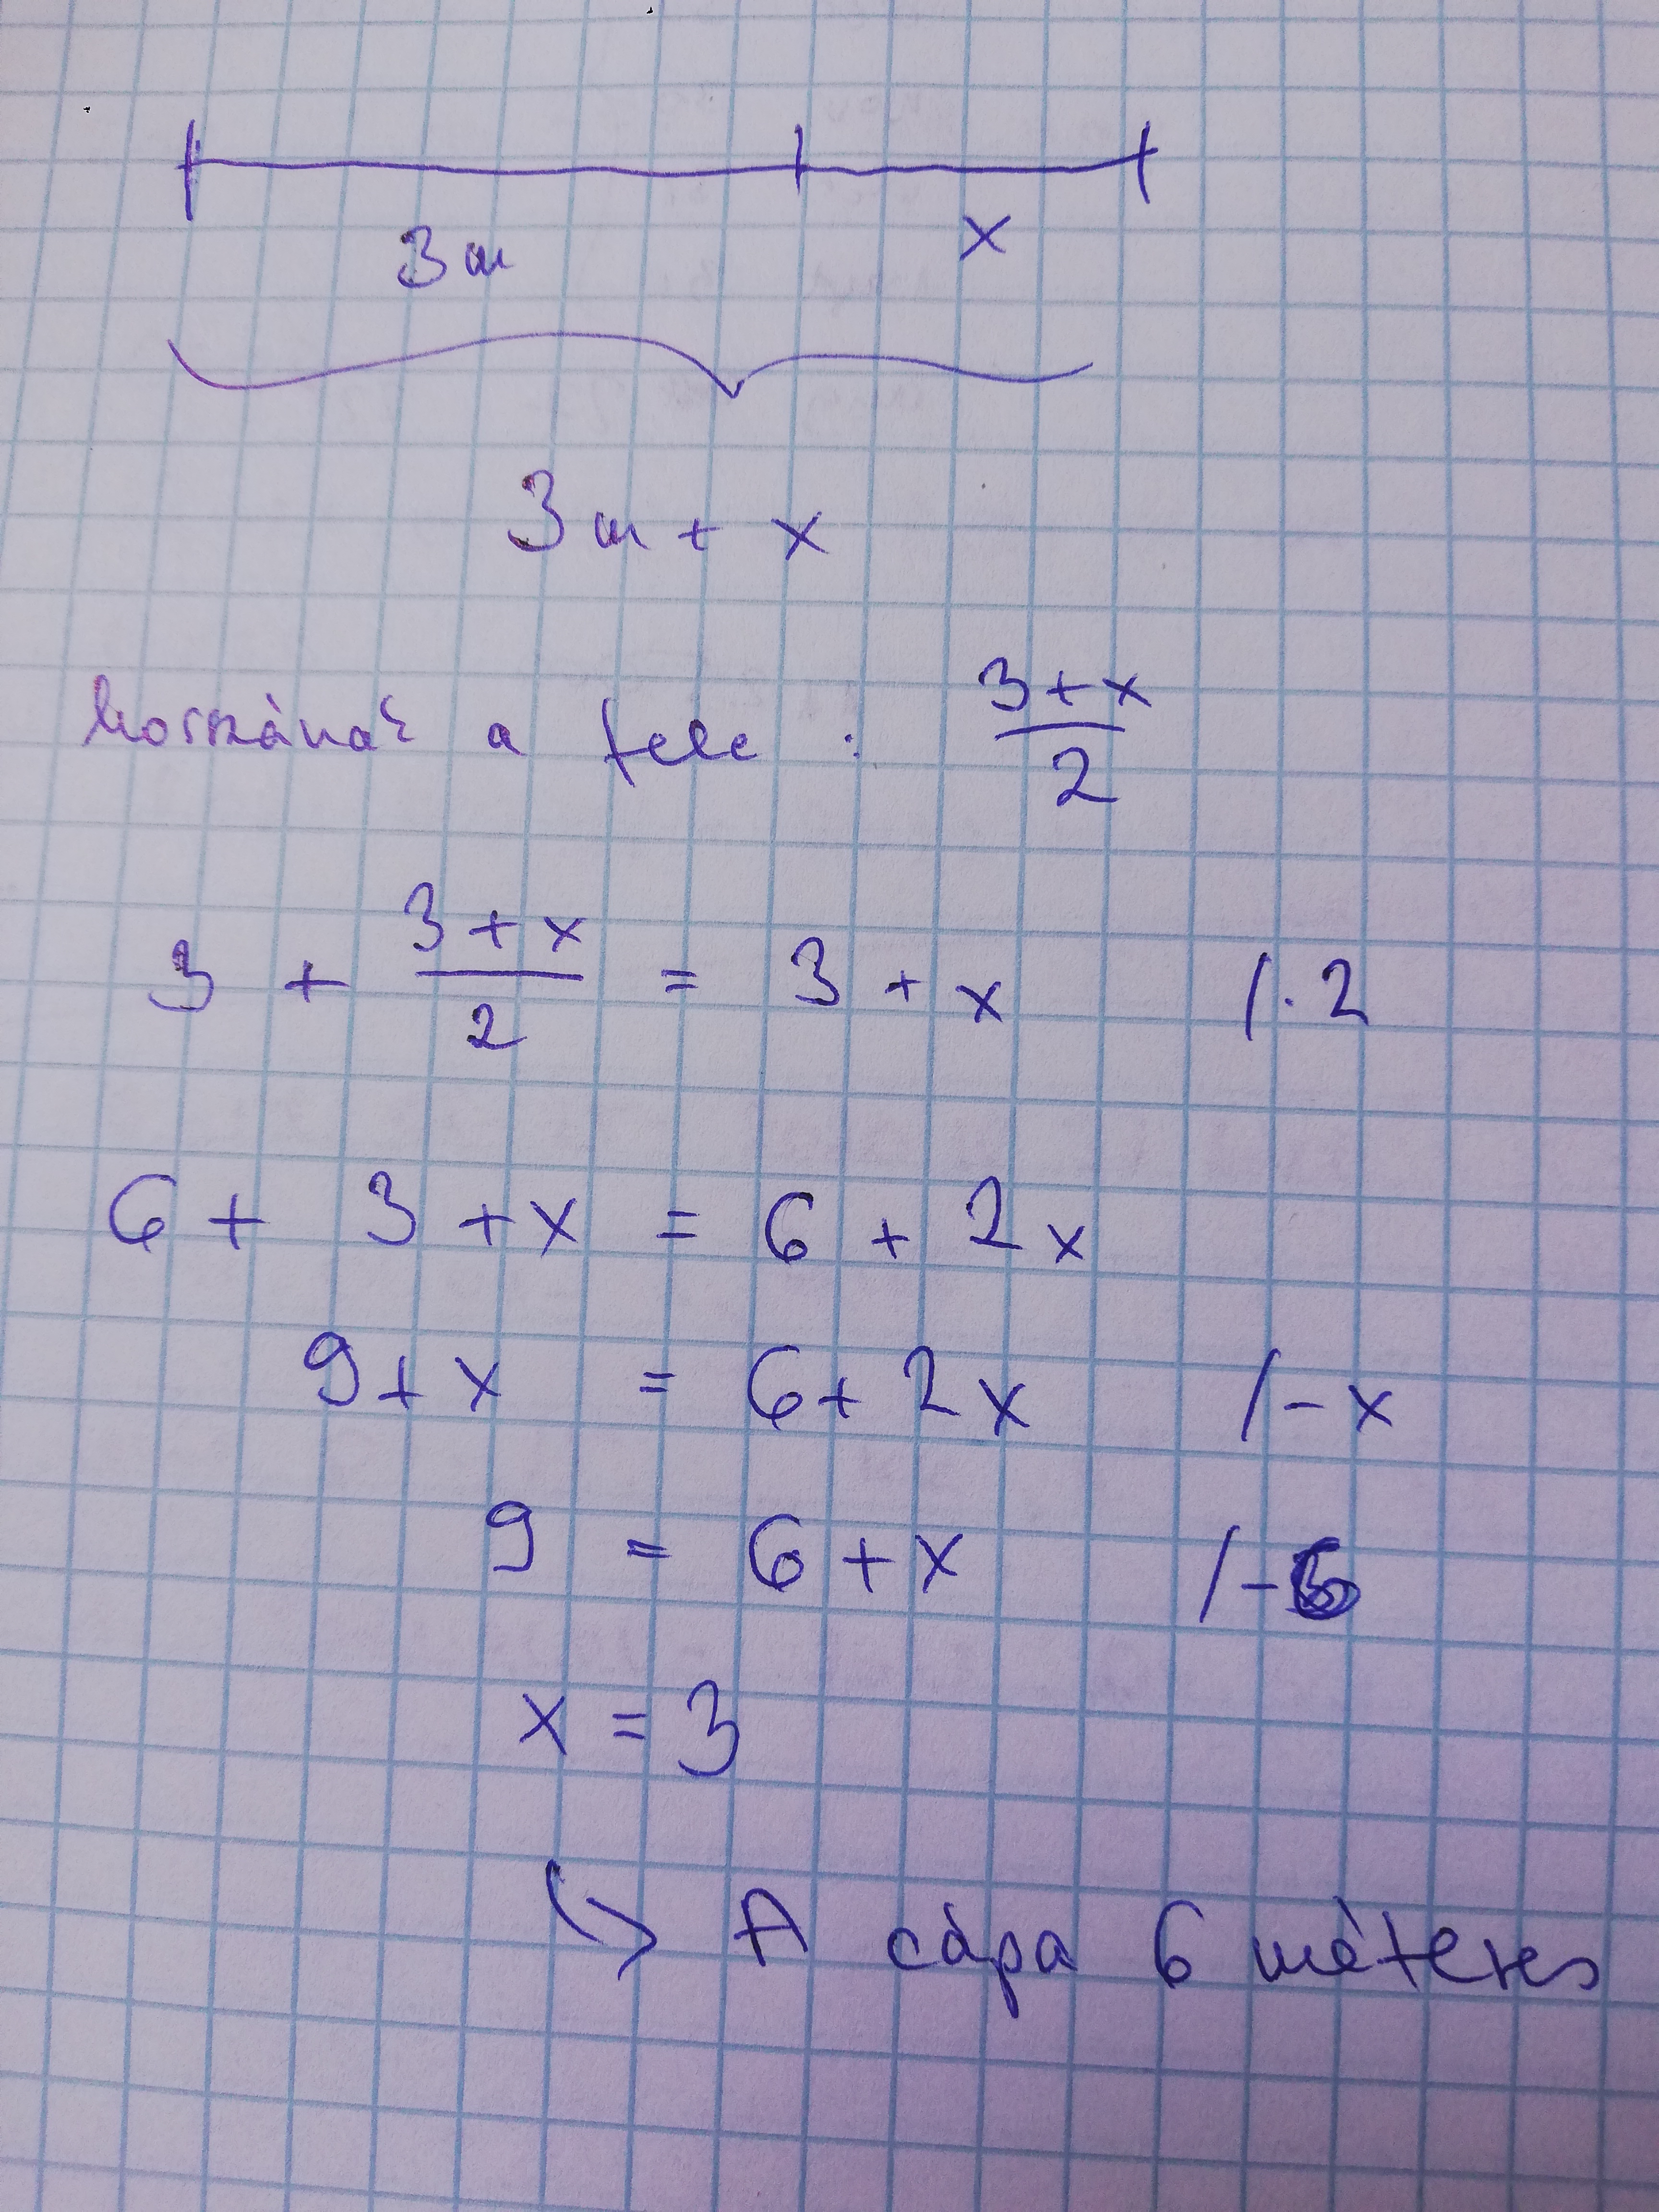 3m x
3m + x
hosszának a fele : (3+x)/2
3 + (3+x)/2 = 3 + x /·2
6 + 3 + x = 6 + 2x
9 + x = 6 + 2x /-x
9 = 6 + x /-6
x = 3
↳ A cápa 6 méteres